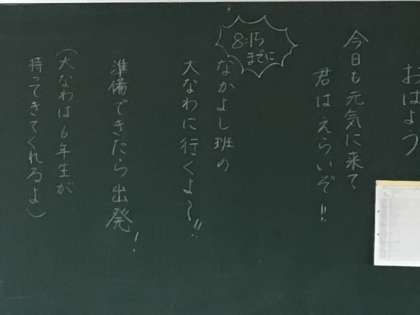 おはよう
今日も元気に来て
君はえらいぞ!!
8:15
までに
なかよし班の
大なわに行くよ〜!!
準備できたら出発!
(大なわは6年生が
持ってきてくれるよ)